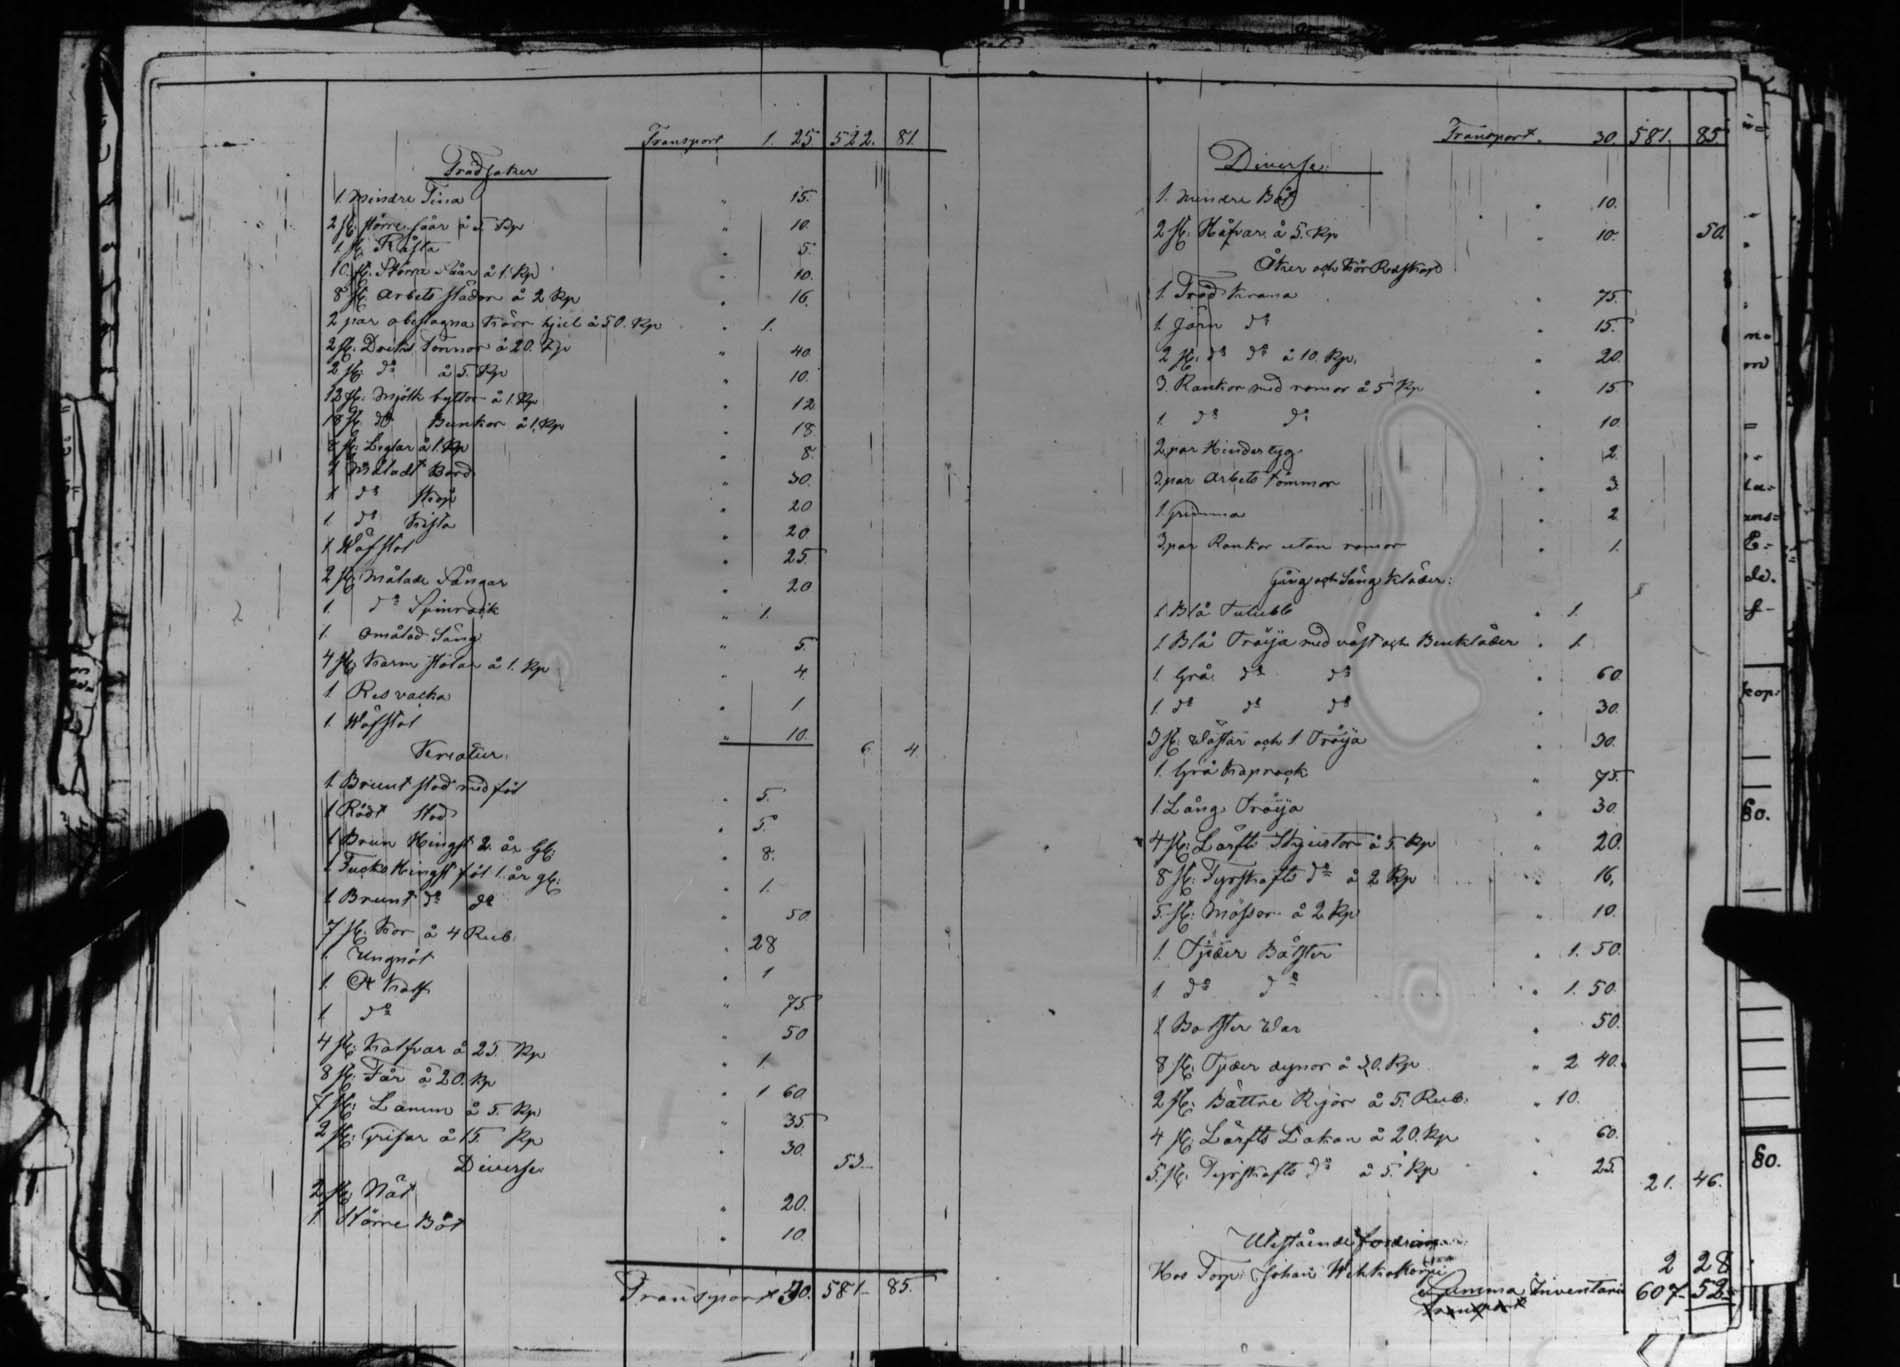 Transport 1. 25 522. 81.
Trädsaker
1. mindre Tina " 15.
2 st: större Såar à 5. Kp " 10.
1 st. " 5.
10. st. Större Såar à 1. Kp " 10.
8 st. Arbets slädor à 2 Kp " 16.
2 par obeslagna kärr hjul à 50. Kp " 1.
2 st. Dricks tonnor à 20. Kp " 40
2 st. do à 5. Kp " 10.
12 st. Mjölk byttor à 1. Kp " 12
18 st. do Bunkor à 1. Kp " 18
8 st. Leglar à 1. Kp " 8.
1 Måladt Bord " 30.
1 do skåp " 20
1. do Kista " 20
1 Wäfstol " 25
2 st. Målade Sängar " 20
1. do Spinrock " 1.
1. omålad Säng " 5.
4 st. Karm stolar à 1. Kp " 4.
1 Res vacka " 1
1. Wäfstol " 10. 6 4.
Kreatur.
1 Brunt stod med föl " 5.
1 Rödt stod " 5.
1 Brun Hingst 2. år gl. " 8.
1 Fucks Hingst föl 1. år gl: " 1.
1 Brunt do do " 50.
7 st. Kor à 4 Rub. " 28
1. Ungnöt " 1
1. Kalf " 75
1 do " 50
4 st. Kalfvar à 25. Kp " 1
8 st. Får à 20. Kp " 1 60.
7 st: Lamm à 5. Kp " 35
2 st: Grisar à 15 Kp " 30. 53.
Diverse
2 st. Nät " 20.
1 större Båt " 10.
Transport 30. 581. 85.
Transport. 30. 581. 85.
Diverse.
1. mindre Båt " 10.
2 st. Håfvar à 5. Kp " 10. 50.
Åker och Kör Redskap
1. Träd Krana " 75.
1. Järn do " 15.
2 st. do do à 10 Kp. " 20.
3. Rankor med romor à 5 Kp " 15
1. do do " 10.
2 par Hindertyg " 2.
3 par Arbets tömmor " 3
1. Grimma " 2
3 par Rankor utan romor " 1.
Gång och Säng Kläder:
1 Blå Tulubb " 1.
1 Blå Tröija med väst och Benkläder " 1.
1. Grå do do " 60.
1. do do do " 30.
3 st. Wästar och 1 Tröija " 30.
1. Grå Kaprock " 75.
1 Lång Tröija " 30.
4 st: Lärfts Skjortor à 5. Kp " 20.
8 st. Fyrskafts do à 2 Kp " 16.
5. st. Mössor à 2 Kp " 10.
1. Fjäder Bålster " 1. 50.
1. do do " 1. 50.
1 Bolster War " 50.
8 st. Fjäder dynor à 30. Kp " 2 40.
2 st. Bättre Ryor à 5. Rub. " 10.
4 st. Lärfts Lakan à 20. Kp " 60.
5. st. Fyrskafts do à 5. Kp " 25. 21. 46.
Utestående fordringar
Hos Torp. Johan 2 28
Summa Inventarie 607. 52.
Transport